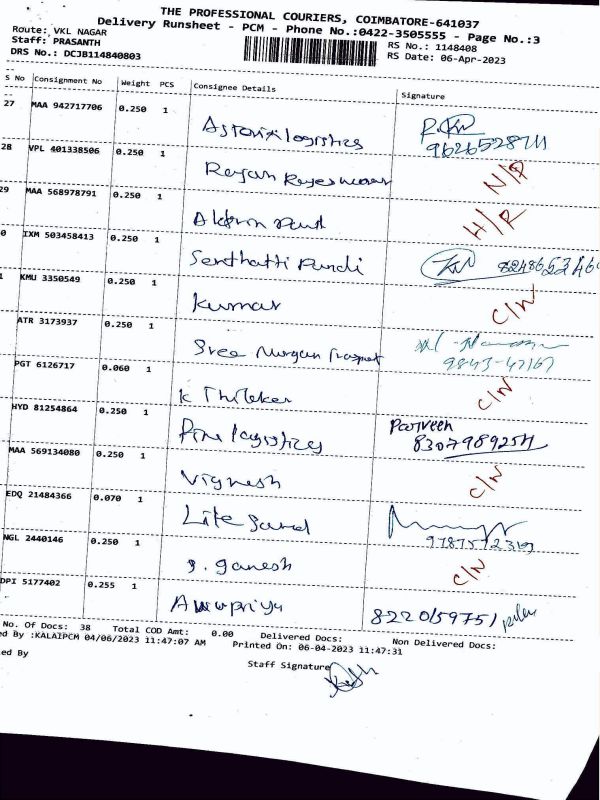 THE PROFESSIONAL COURIERS, COIMBATORE-641037
Delivery Runsheet - PCM - Phone No.:0422-3505555 - Page No.:3
Route: VKL NAGAR
Staff: PRASANTH
DRS No.: DCJB114840803
RS No.: 1148408
RS Date: 06-Apr-2023
S No Consignment No Weight PCS Consignee Details Signature
27 MAA 942717706 0.250 1 logistics 9626528711
28 VPL 401338506 0.250 1 Rajan Rajeswaran N/R
29 MAA 568978791 0.250 1 H/R
0 IXM 503458413 0.250 1 Senthatti Pandi
1 KMU 3350549 0.250 1 Kumar C/N
ATR 3173937 0.250 1 Sree Murgan
PGT 6126717 0.060 1 K C/N
HYD 81254864 0.250 1 logistics Parveen 8307989251
MAA 569134080 0.250 1 Vignesh C/N
EDQ 21484366 0.070 1 Lite
NGL 2440146 0.250 1 ganesh C/N
DPI 5177402 0.255 1 8220159751
No. Of Docs: 38 Total COD Amt: 0.00 Delivered Docs: Non Delivered Docs:
ed By :KALAIPCM 04/06/2023 11:47:07 AM Printed On: 06-04-2023 11:47:31
ed By
Staff Signature